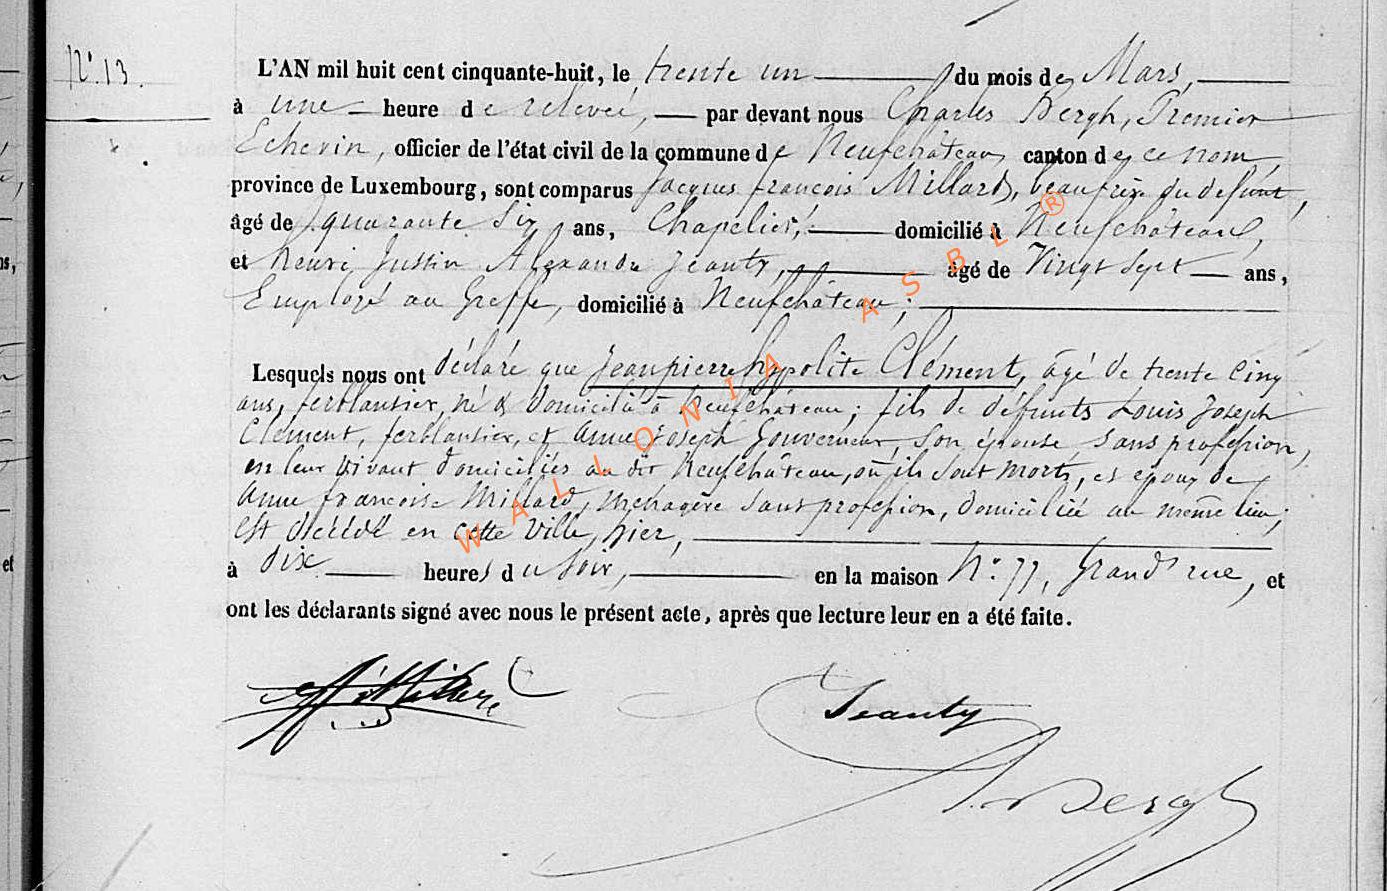 N° 13.
L'AN mil huit cent cinquante-huit, le trente un du mois de Mars,
à une heure de relevée, par devant nous Charles Bergh, Premier
Echevin, officier de l'état civil de la commune de Neufchâteau, canton de ce nom,
province de Luxembourg, sont comparus Jacques françois Millard, beaufrère du défunt,
âgé de quarante Six ans, Chapelier, domicilié à Neufchâteau,
et henri Justin Alexandre Jeanty, âgé de Vingt Sept ans,
Employé au Greffe, domicilié à Neufchâteau;
Lesquels nous ont déclaré que Jeanpierre hyppolite Clément, âgé de trente Cinq
ans, ferblantier, né & domicilié à Neufchâteau; fils de défunts Louis Joseph
Clément, ferblantier, et Anne Joseph Gouverneur, son épouse, sans profession,
en leur vivant domiciliés au dit Neufchâteau, où ils sont morts, et époux de
Anne françoise Millard, ménagère sans profession, domiciliée au même lieu;
est décédé en cette Ville, hier,
à dix heures du soir, en la maison N° 77, grand'rue, et
ont les déclarants signé avec nous le présent acte, après que lecture leur en a été faite.
Jeanty
Bergh
WALLONIA ASBL ®